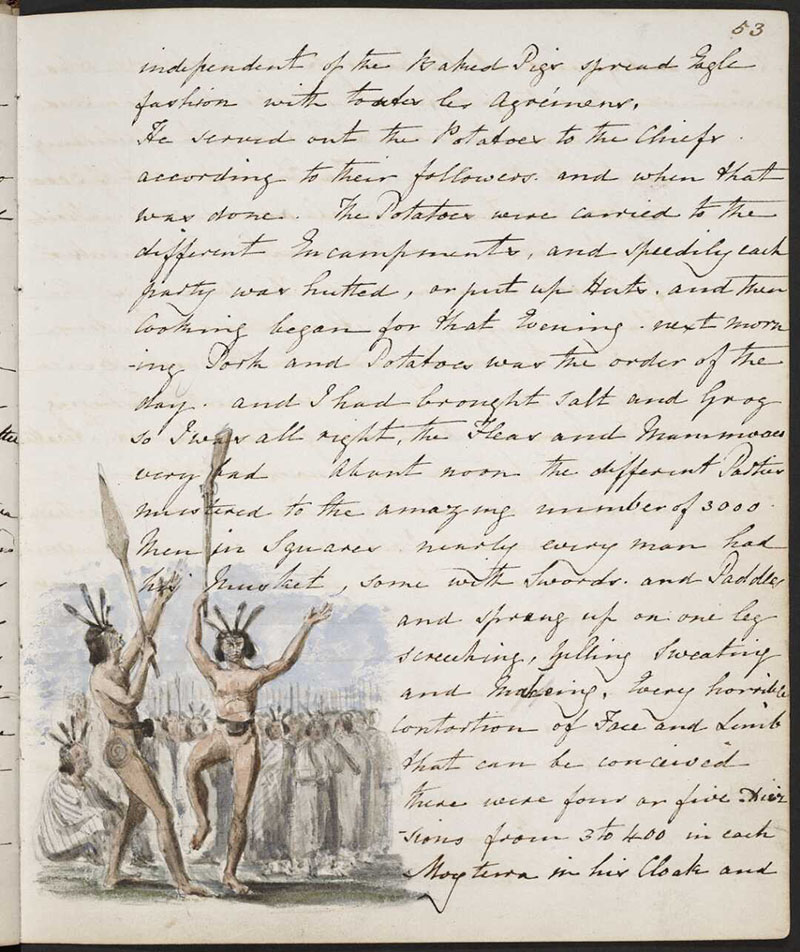 53
independent of the Baked Pigs spread Eagle
fashion with toutes les Agrémens.
He served out the Potatoes to the Chiefs.
according to their followers. and when that
was done. The Potatoes were carried to the
different Encampments, and speedily each
party was hutted, or put up Huts. and then
Cooking began for that Evening. next morn
-ing Pork and Potatoes was the order of the
day. and I had brought Salt and Grog
so I was all right, the Fleas and
very bad About noon the different Parties
mustered to the amazing number of 3000
Men in Squares. nearly every man had
his Musket, some with Swords. and Paddles
and sprang up on one leg
screeching, yelling Sweating
and Making. Every horrible
contortion of Face and Limb
that can be conceived
there were four or five Divi
-sions from 3 to 400 in each
in his Cloak and